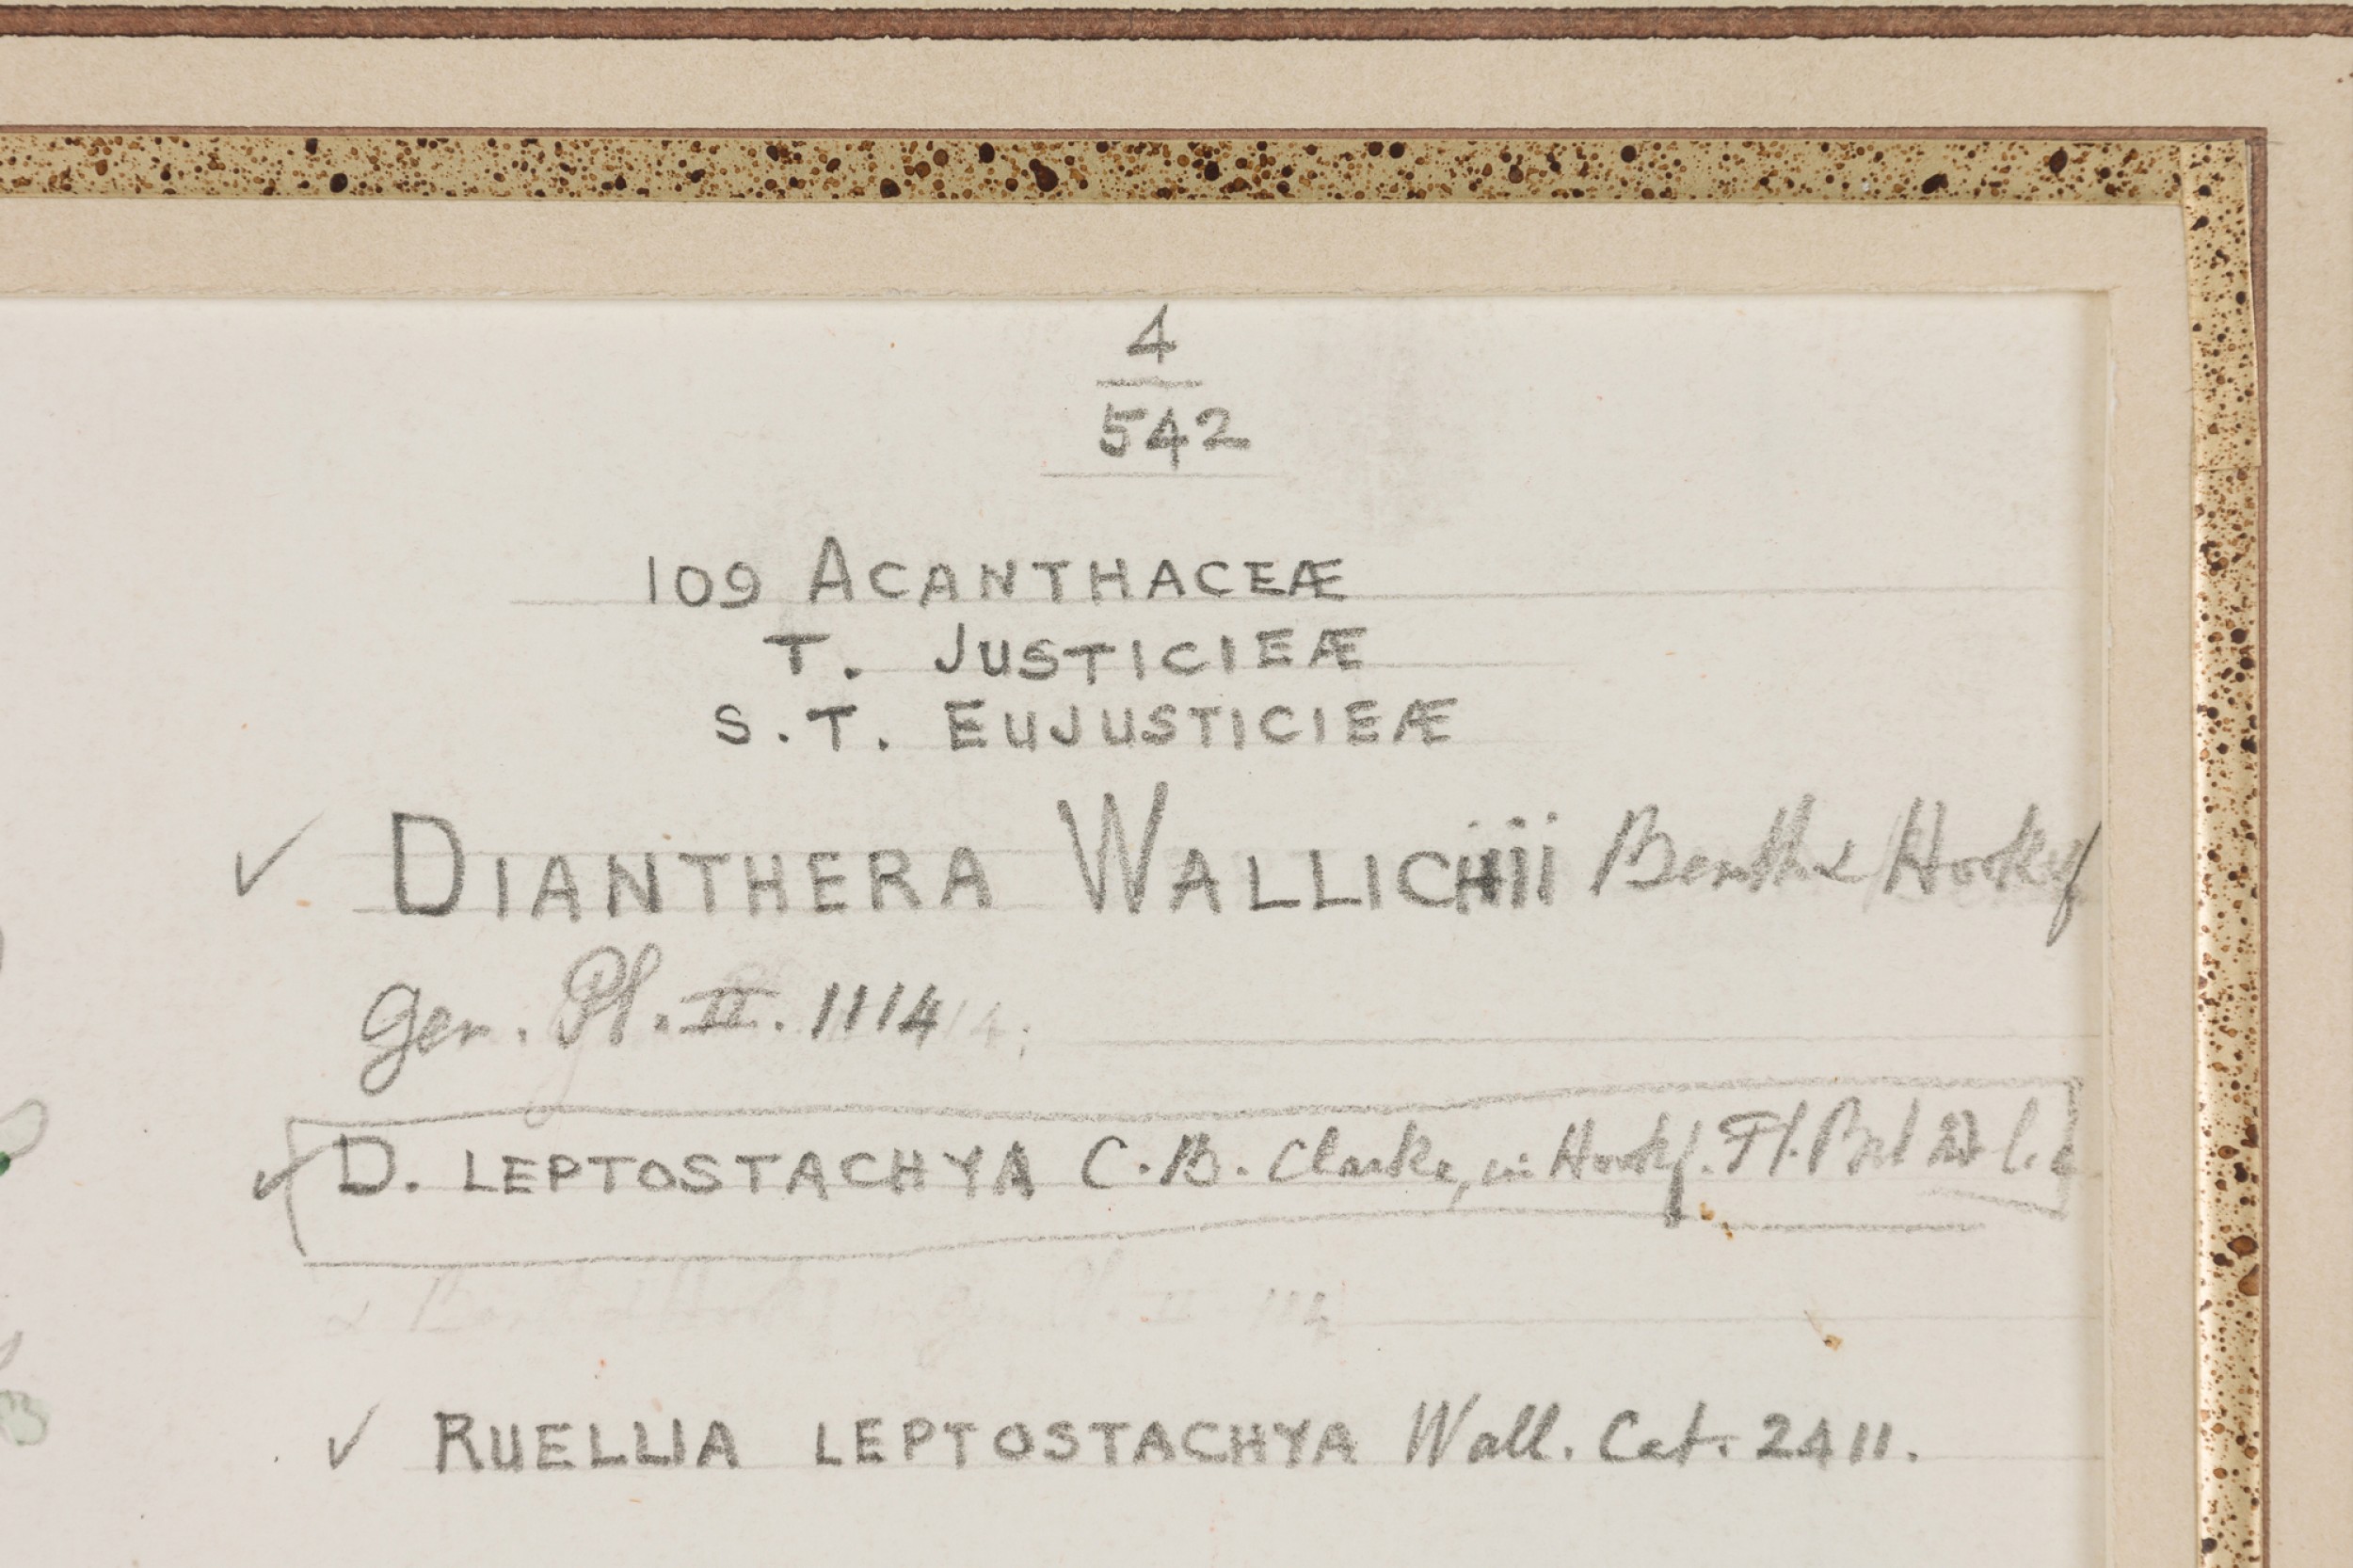 4
542
109 ACANTHACEÆ
T. JUSTICIEÆ
S.T. EUJUSTICIEÆ
✓ DIANTHERA WALLICHii Benth. & Hook f
Gen. Pl. II. 1114
✓ D. LEPTOSTACHYA C.B. Clarke, in Hook f. Fl. Brt
✓ RUELLIA LEPTOSTACHYA Wall. Cat. 2411.